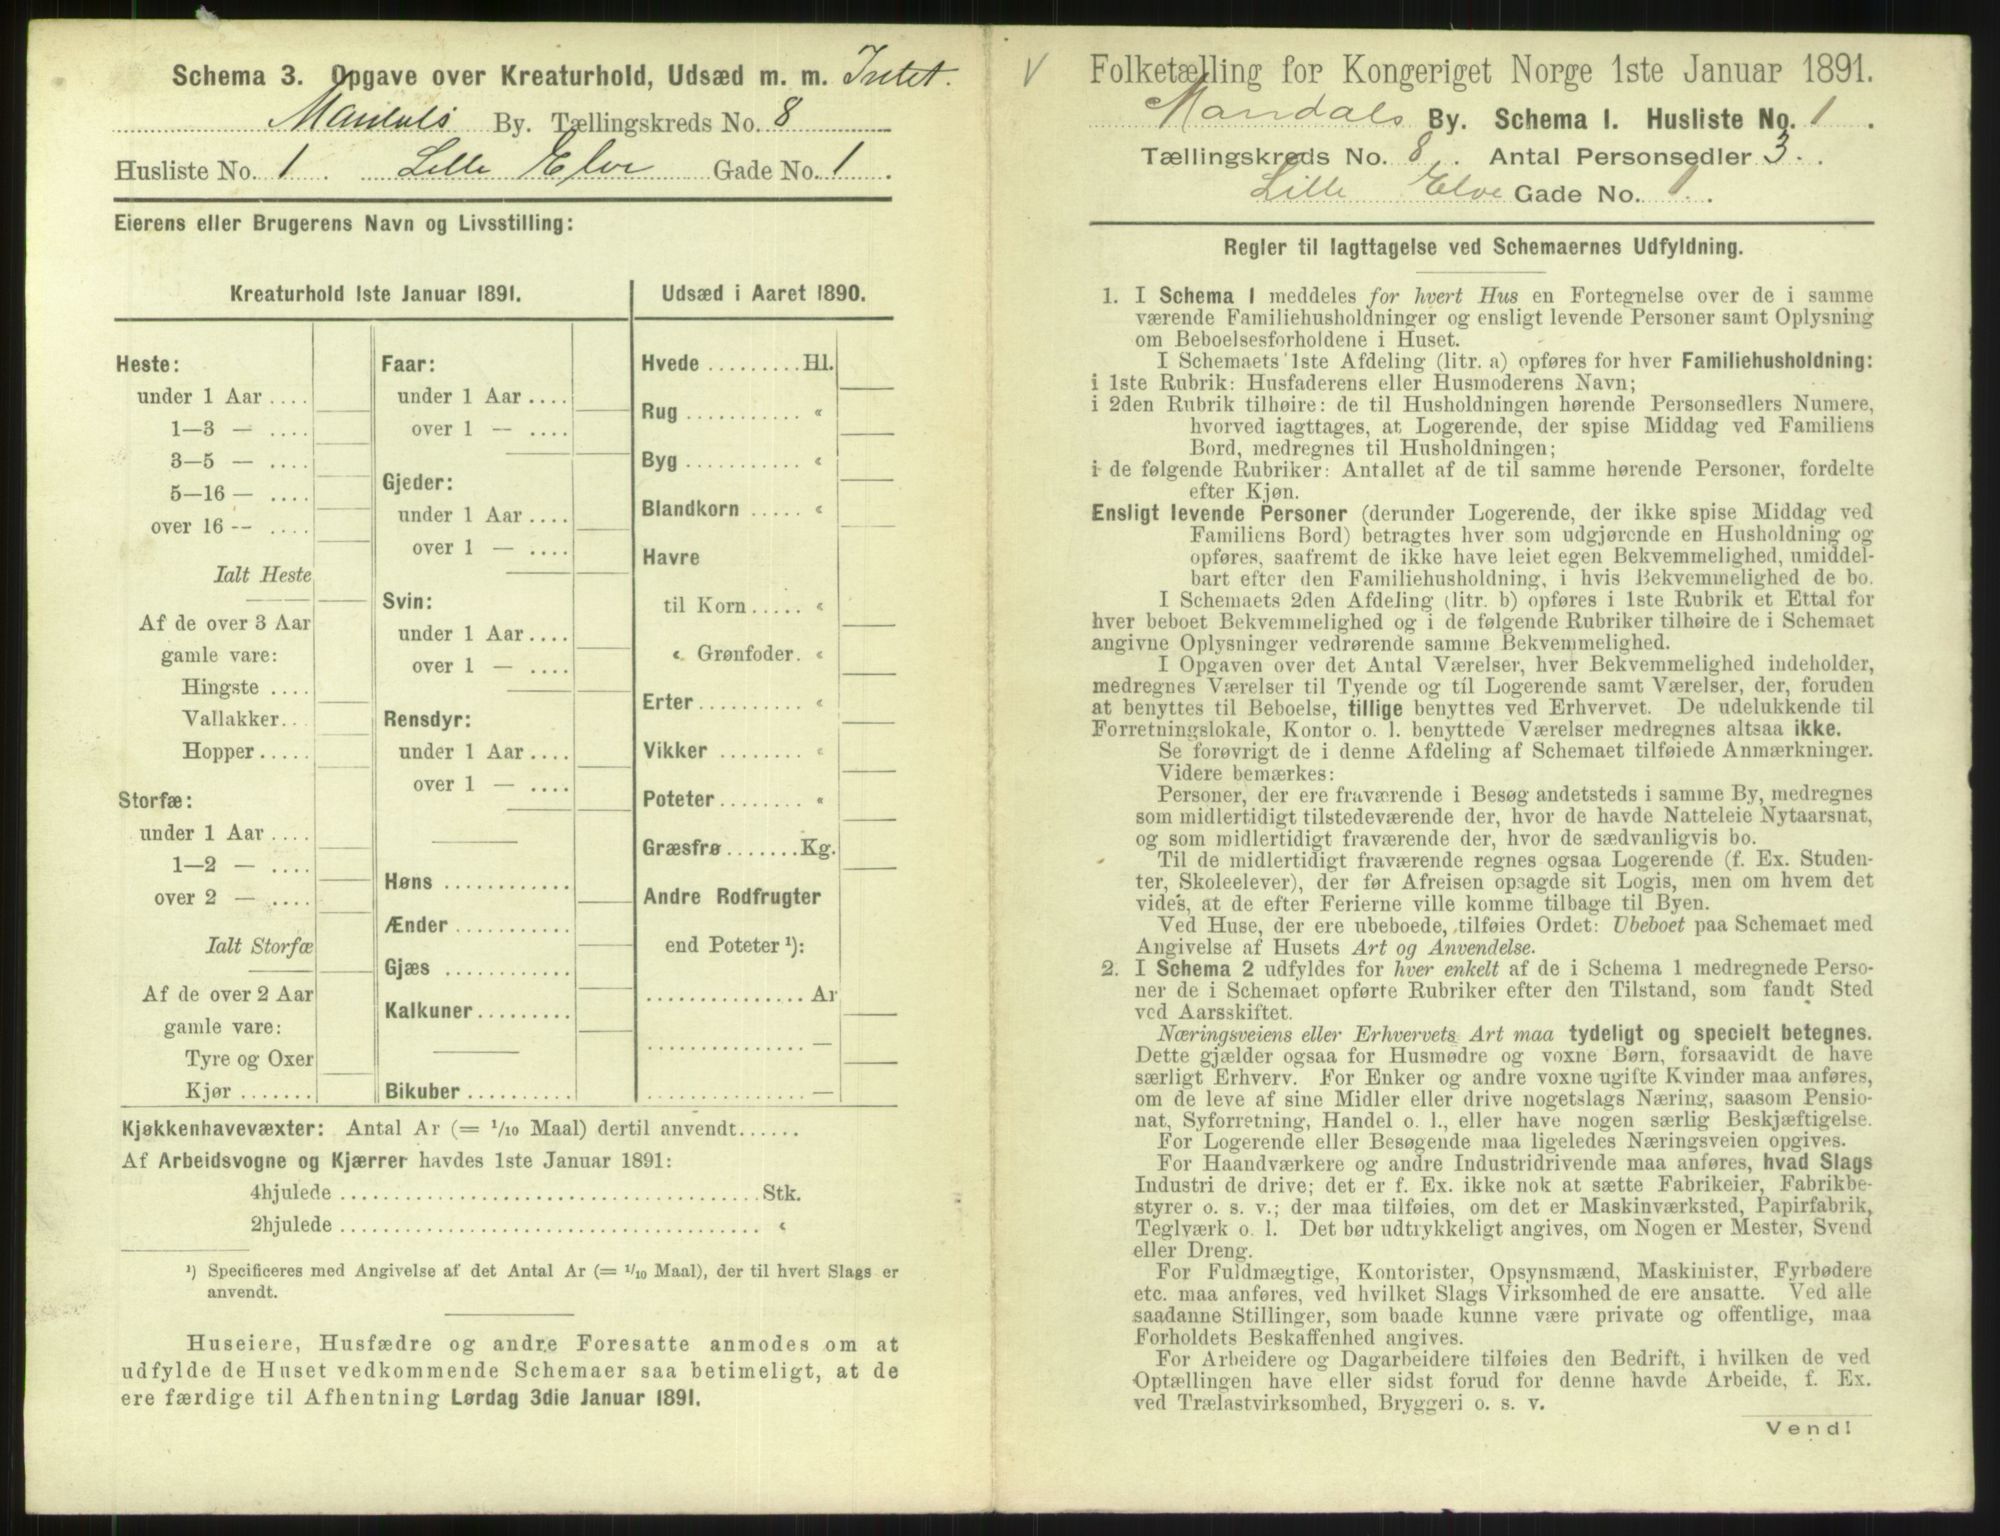 Schema 3. Opgave over Kreaturhold, Udsæd m. m. Intet.
Mandals By. Tællingskreds No. 8
Husliste No. 1. Lille Elve Gade No. 1.
Eierens eller Brugerens Navn og Livsstilling:
Kreaturhold 1ste Januar 1891.
Heste:
under 1 Aar ....
1—3 — ....
3—5 — ....
5—16 — ....
over 16 -- ....
Ialt Heste
Af de over 3 Aar
gamle vare:
Hingste ....
Vallakker...
Hopper .....
Storfæ:
under 1 Aar ....
1—2 — ....
over 2 — ....
Ialt Storfæ
Af de over 2 Aar
gamle vare:
Tyre og Oxer
Kjør .......
Faar:
under 1 Aar ....
over 1 — ....
Gjeder:
under 1 Aar ....
over 1 — ....
Svin:
under 1 Aar ....
over 1 — ....
Rensdyr:
under 1 Aar ....
over 1 — ....
Høns ............
Ænder ...........
Gjæs ............
Kalkuner.........
Bikuber ..........
Udsæd i Aaret 1890.
Hvede ......... Hl.
Rug ........... «
Byg ........... «
Blandkorn ..... «
Havre
til Korn ..... «
« Grønfoder. «
Erter ......... «
Vikker ........ «
Poteter ........ «
Græsfrø ....... Kg.
Andre Rodfrugter
end Poteter ¹):
............... Ar
............... —
............... —
Kjøkkenhavevæxter: Antal Ar (= 1/10 Maal) dertil anvendt......
Af Arbeidsvogne og Kjærrer havdes 1ste Januar 1891:
4hjulede ........................................ Stk.
2hjulede ........................................ «
¹) Specificeres med Angivelse af det Antal Ar (= 1/10 Maal), der til hvert Slags er
anvendt.
Huseiere, Husfædre og andre Foresatte anmodes om at
udfylde de Huset vedkommende Schemaer saa betimeligt, at de
ere færdige til Afhentning Lørdag 3die Januar 1891.
V Folketælling for Kongeriget Norge 1ste Januar 1891.
Mandals By. Schema I. Husliste No. 1.
Tællingskreds No. 8. Antal Personsedler 3.
Lille Elve Gade No. 1.
Regler til Iagttagelse ved Schemaernes Udfyldning.
1. I Schema 1 meddeles for hvert Hus en Fortegnelse over de i samme
værende Familiehusholdninger og ensligt levende Personer samt Oplysning
om Beboelsesforholdene i Huset.
I Schemaets 1ste Afdeling (litr. a) opføres for hver Familiehusholdning:
i 1ste Rubrik: Husfaderens eller Husmoderens Navn;
i 2den Rubrik tilhøire: de til Husholdningen hørende Personsedlers Numere,
hvorved iagttages, at Logerende, der spise Middag ved Familiens
Bord, medregnes til Husholdningen;
i de følgende Rubriker: Antallet af de til samme hørende Personer, fordelte
efter Kjøn.
Ensligt levende Personer (derunder Logerende, der ikke spise Middag ved
Familiens Bord) betragtes hver som udgjørende en Husholdning og
opføres, saafremt de ikke have leiet egen Bekvemmelighed, umiddel-
bart efter den Familiehusholdning, i hvis Bekvemmelighed de bo.
I Schemaets 2den Afdeling (litr. b) opføres i 1ste Rubrik et Ettal for
hver beboet Bekvemmelighed og i de følgende Rubriker tilhøire de i Schemaet
angivne Oplysninger vedrørende samme Bekvemmelighed.
I Opgaven over det Antal Værelser, hver Bekvemmelighed indeholder,
medregnes Værelser til Tyende og til Logerende samt Værelser, der, foruden
at benyttes til Beboelse, tillige benyttes ved Erhvervet. De udelukkende til
Forretningslokale, Kontor o. l. benyttede Værelser medregnes altsaa ikke.
Se forøvrigt de i denne Afdeling af Schemaet tilføiede Anmærkninger.
Videre bemærkes:
Personer, der ere fraværende i Besøg andetsteds i samme By, medregnes
som midlertidigt tilstedeværende der, hvor de havde Natteleie Nytaarsnat,
og som midlertidigt fraværende der, hvor de sædvanligvis bo.
Til de midlertidigt fraværende regnes ogsaa Logerende (f. Ex. Studen-
ter, Skoleelever), der før Afreisen opsagde sit Logis, men om hvem det
vides, at de efter Ferierne ville komme tilbage til Byen.
Ved Huse, der ere ubeboede, tilføies Ordet: Ubeboet paa Schemaet med
Angivelse af Husets Art og Anvendelse.
2. I Schema 2 udfyldes for hver enkelt af de i Schema 1 medregnede Perso-
ner de i Schemaet opførte Rubriker efter den Tilstand, som fandt Sted
ved Aarsskiftet.
Næringsveiens eller Erhvervets Art maa tydeligt og specielt betegnes.
Dette gjælder ogsaa for Husmødre og voxne Børn, forsaavidt de have
særligt Erhverv. For Enker og andre voxne ugifte Kvinder maa anføres,
om de leve af sine Midler eller drive nogetslags Næring, saasom Pensio-
nat, Syforretning, Handel o. l., eller have nogen særlig Beskjæftigelse.
For Logerende eller Besøgende maa ligeledes Næringsveien opgives.
For Haandværkere og andre Industridrivende maa anføres, hvad Slags
Industri de drive; det er f. Ex. ikke nok at sætte Fabrikeier, Fabrikbe-
styrer o. s. v.; der maa tilføies, om det er Maskinværksted, Papirfabrik,
Teglværk o. l. Det bør udtrykkeligt angives, om Nogen er Mester, Svend
eller Dreng.
For Fuldmægtige, Kontorister, Opsynsmænd, Maskinister, Fyrbødere
etc. maa anføres, ved hvilket Slags Virksomhed de ere ansatte. Ved alle
saadanne Stillinger, som baade kunne være private og offentlige, maa
Forholdets Beskaffenhed angives.
For Arbeidere og Dagarbeidere tilføies den Bedrift, i hvilken de ved
Optællingen have eller sidst forud for denne havde Arbeide, f. Ex.
ved Trælastvirksomhed, Bryggeri o. s. v.
Vend!